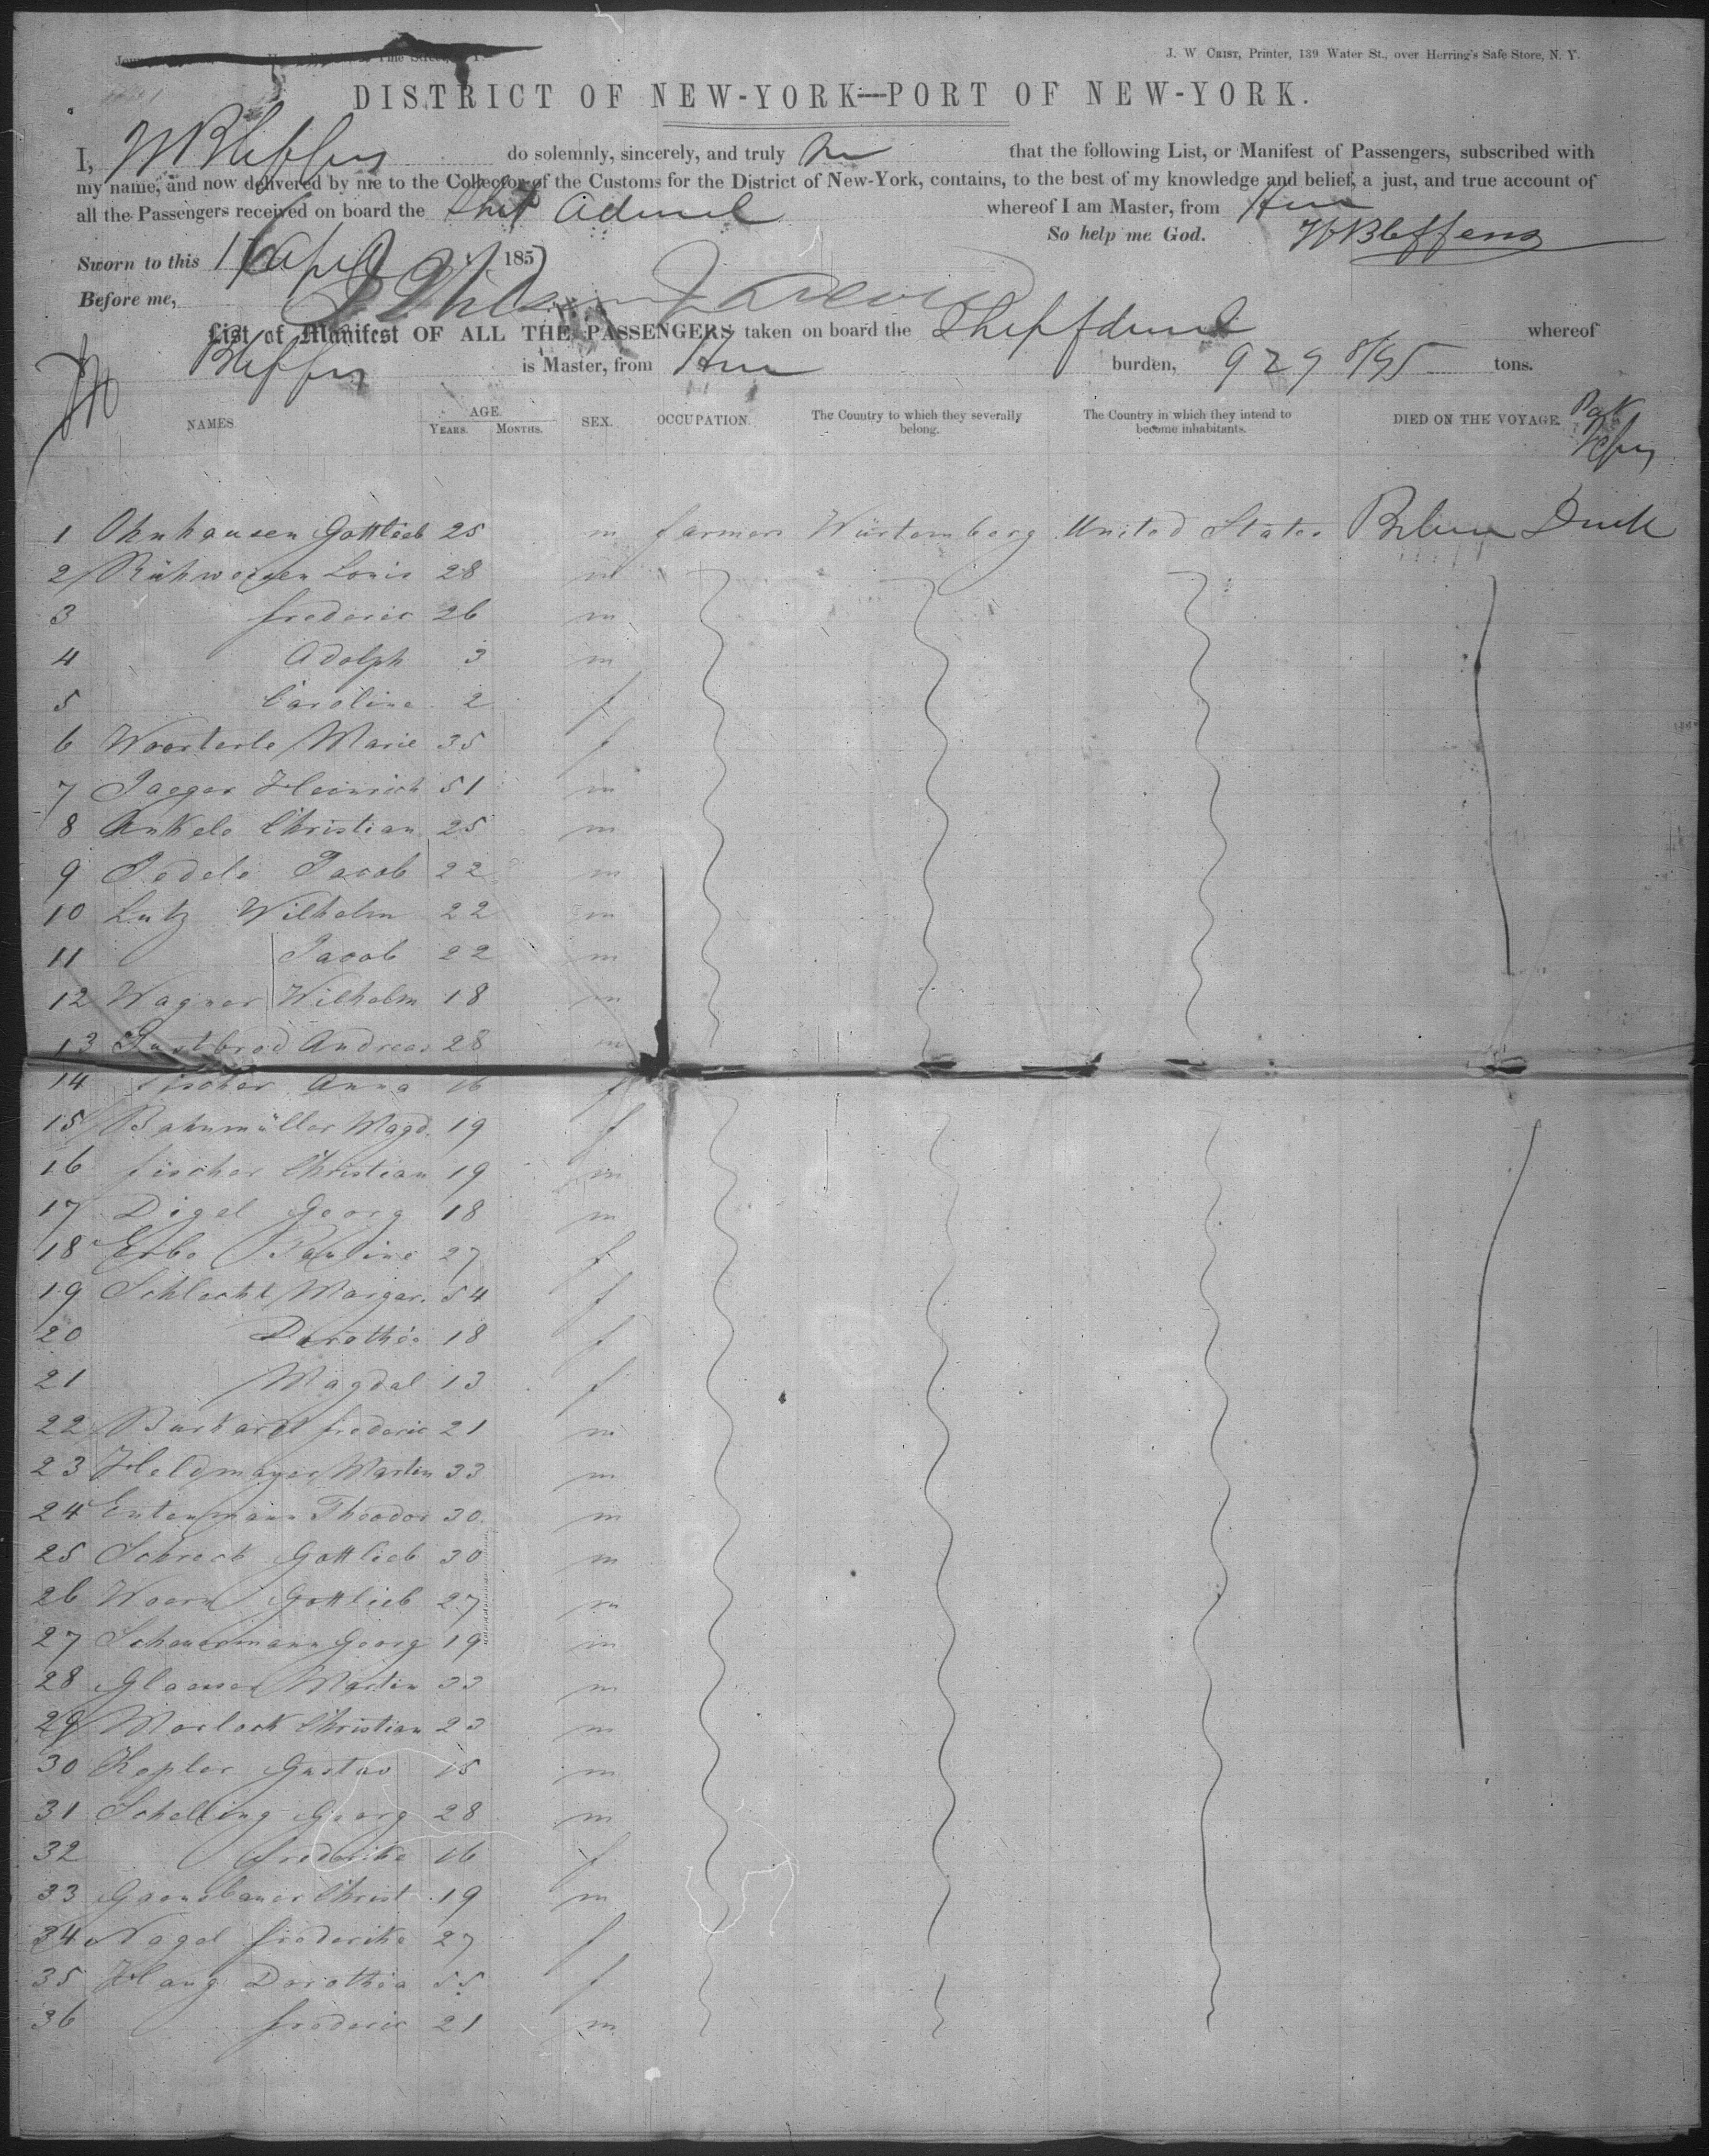 J. W. CRIST, Printer, 139 Water St., over Herring's Safe Store, N. Y.
DISTRICT OF NEW-YORK—PORT OF NEW-YORK.
I, do solemnly, sincerely, and truly that the following List, or Manifest of Passengers, subscribed with
my name, and now delivered by me to the Collector of the Customs for the District of New-York, contains, to the best of my knowledge and belief, a just, and true account of
all the Passengers received on board the Ship whereof I am Master, from
So help me God.
Sworn to this 16 April 1857
Before me,
List of Manifest OF ALL THE PASSENGERS taken on board the Ship whereof
is Master, from burden, 929 8/95 tons.
NAMES. AGE. YEARS. MONTHS. SEX. OCCUPATION. The Country to which they severally belong. The Country in which they intend to become inhabitants. DIED ON THE VOYAGE.
1 Ohnhausen Gottlieb 25 m farmer Würtemberg United States
2 Louis 28 m
3 frederic 26 m
4 Adolph 3 m
5 Caroline 2 f
6 Woerterle Marie 35 f
7 Jaeger Heinrich 51 m
8 Ankele Christian 25 m
9 Jedele Jacob 22 m
10 Lutz Wilhelm 22 m
11 Jacob 22 m
12 Wagner Wilhelm 18 m
13 Andreas 28 m
14 fischer Anna 16 f
15 Bahnmüller Magd. 19 f
16 fischer Christian 19 m
17 Digel Georg 18 m
18 Erbe Pauline 27 f
19 Schlecht Margar. 54 f
20 Dorothea 18 f
21 Magdal 13 f
22 Burkardt frederic 21 m
23 Heldmayer Martin 33 m
24 Entenmann Theodor 30 m
25 Schreck Gottlieb 30 m
26 Woern Gottlieb 27 m
27 Scheuermann Georg 19 m
28 Glaeser Martin 33 m
29 Morlock Christian 23 m
30 Kepler Gustav 15 m
31 Schelling Georg 28 m
32 frederike 16 f
33 Gaensbauer Christ. 19 m
34 Nagel frederike 27 f
35 Haug Dorothea 55 f
36 frederic 21 m